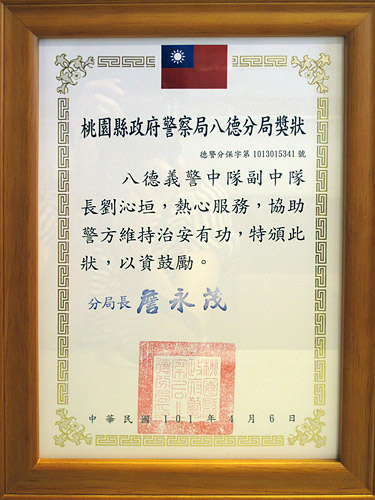 桃園縣政府警察局八德分局獎狀
德警分保字第1013015341號
八德義警中隊副中隊
長劉沁垣，熱心服務，協助
警方維持治安有功，特頒此
狀，以資鼓勵。
分局長 詹永茂
中華民國 101 年 4 月 6 日